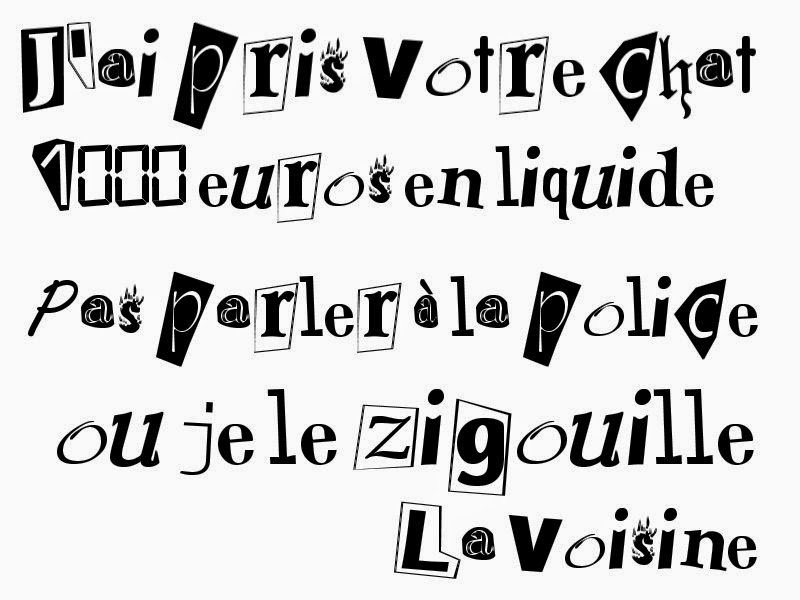 J'ai pris votre chat
1000 euros en liquide
Pas parler à la police
ou je le zigouille
La voisine